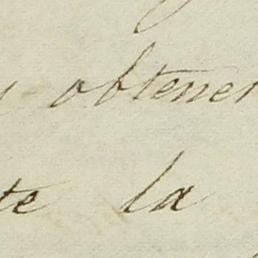 obtener
te la